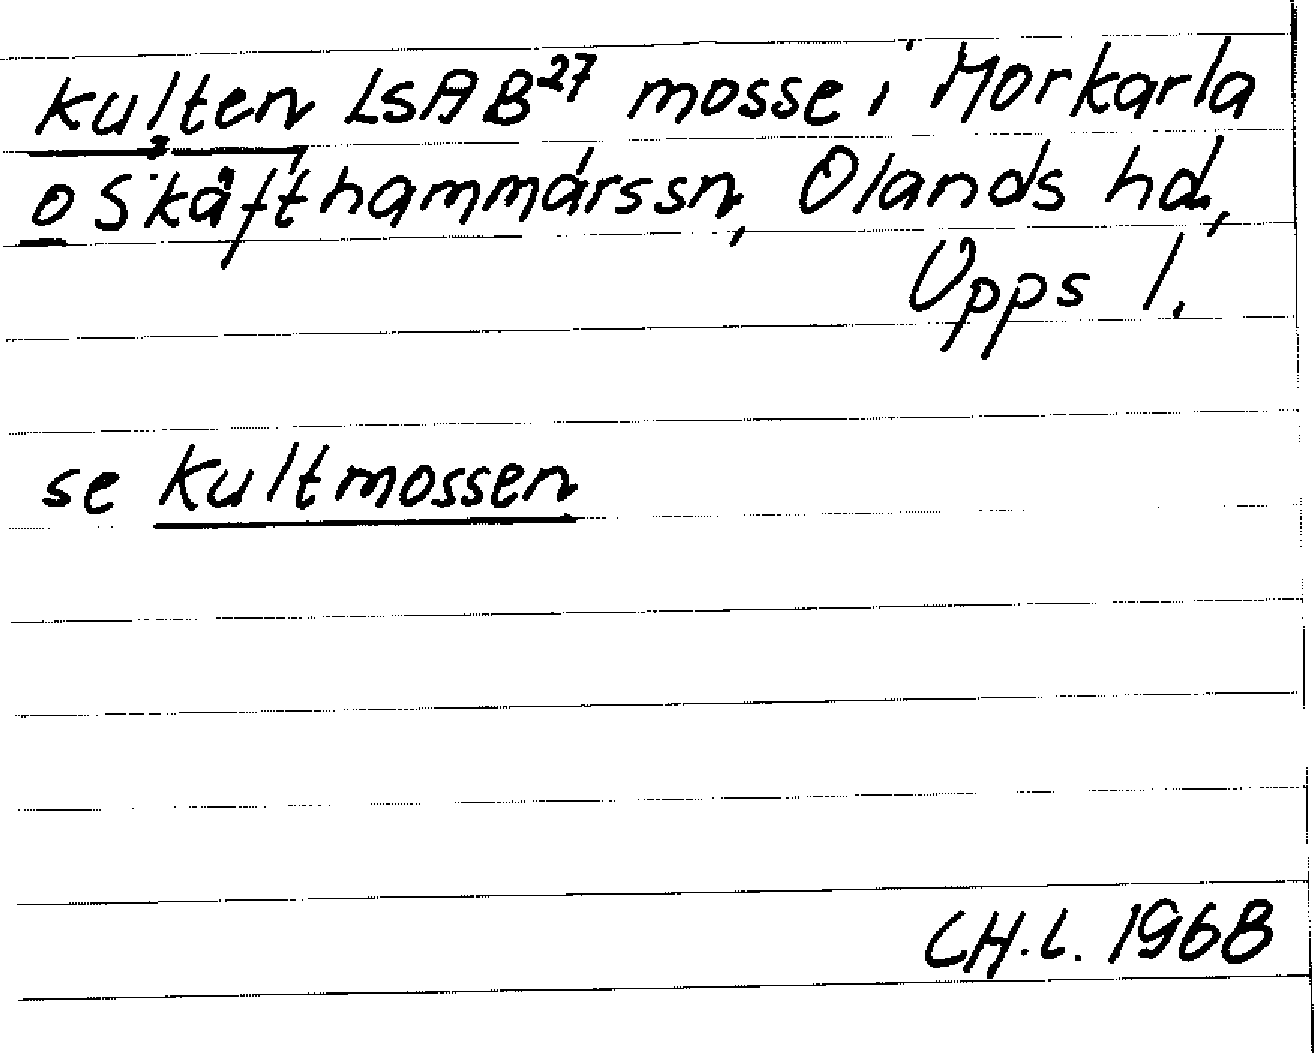 Kulten LSA B27 mosse i Morkarla
o Skäfthammarssn, Olands hd,
Upps l.
se Kultmossen
CH.L. 1968